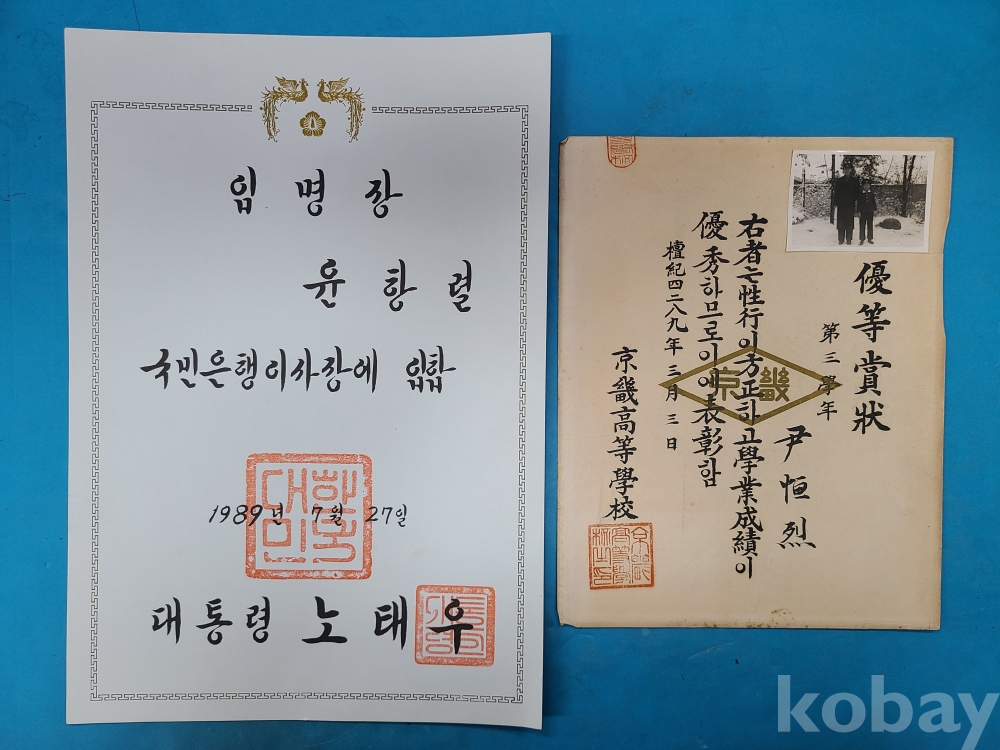 임명장
윤항렬
국민은행이사장에 임함
1989년 7월 27일
대한민국
대통령 노태우
優等賞狀
第三學年
尹恒烈
右者는性行이方正하고學業成績이
優秀하므로이에表彰함
檀紀四二八九年三月三日
京畿高等學校
京畿
kobay